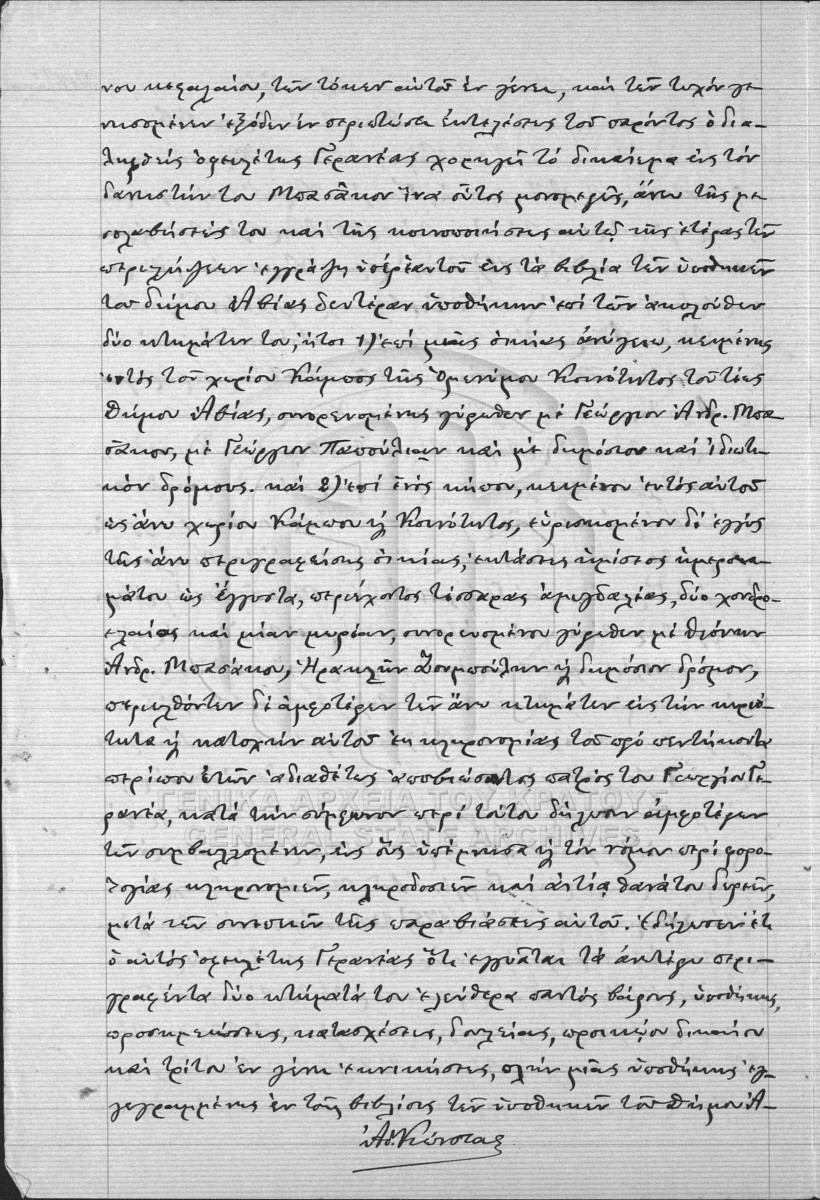 νου κεφαλαίου, τῶν τόκων αὐτοῦ ἐν γένει, καὶ τῶν τυχὸν γε-
νησομένων ἐξόδων ἐν περιπτώσει ἐκτελέσεως τοῦ παρόντος ὁ δια-
ληφθεὶς ὀφειλέτης Γερανέας χορηγεῖ τὸ δικαίωμα εἰς τὸν
δανειστήν του Μπασᾶκον ἵνα οὗτος μονομερῶς, ἄνευ τῆς με-
σολαβήσεώς του καὶ τῆς κοινοποιήσεως αὐτῷ τῆς ἑτέρας τῶν
περιλήψεων ἐγγράψῃ ὑπὲρ ἑαυτοῦ εἰς τὰ βιβλία τῶν ὑποθηκῶν
τοῦ δήμου Ἀβίας δευτέραν ὑποθήκην ἐπὶ τῶν ἀκολούθων
δύο κτημάτων του, ἤτοι 1) ἐπὶ μιᾶς οἰκίας ἀνωγείου, κειμένης
ἐντὸς τοῦ χωρίου Κάμπος τῆς ὁμωνύμου Κοινότητος τοῦ τέως
δήμου Ἀβίας, συνορευομένης γύρωθεν μὲ Γεώργιον Ἀνδρ. Μπα-
σᾶκον, μὲ Γεώργιον Παπούλιαν καὶ μὲ δημόσιον καὶ ἰδιωτι-
κὸν δρόμους. καὶ 2) ἐπὶ ἑνὸς κήπου, κειμένου ἐντὸς αὐτοῦ
ὡς ἄνω χωρίου Κάμπου ἢ Κοινότητος, εὑρισκομένου δὲ ἐγγὺς
τῆς ἄνω περιγραφείσης οἰκίας, ἐκτάσεως ἡμίσεος ἡμεροκα-
μάτου ὡς ἔγγιστα, περιέχοντος τέσσαρας ἀμυγδαλέας, δύο χονδρο-
ελαίας καὶ μίαν μυρέαν, συνορευομένου γύρωθεν μὲ
Ἀνδρ. Μπασάκου, Ἡρακλῆν Ζουμπούλην ἢ δημόσιον δρόμον,
περιελθόντων δὲ ἀμφοτέρων τῶν ἄνω κτημάτων εἰς τὴν κυριό-
τητα ἢ κατοχὴν αὐτοῦ ἐκ κληρονομίας τοῦ πρὸ πεντήκοντα
περίπου ἐτῶν ἀδιαθέτως ἀποβιώσαντος πατρός του Γεωργίου Γε-
ρανέα, κατὰ τὴν σύμφωνον περὶ τούτου δήλωσιν ἀμφοτέρων
τῶν συμβαλλομένων, εἰς οὓς ὑπέμνησα ἢ τὸν νόμον περὶ φορο-
λογίας κληρονομιῶν, κληροδοσιῶν καὶ αἰτίᾳ θανάτου δωρεῶν,
μετὰ τῶν συνεπειῶν τῆς παραβιάσεως αὐτοῦ. Ἐδήλωσεν ἔτι
ὁ αὐτὸς ὀφειλέτης Γερανέας ὅτι ἐγγυᾶται τὰ ἀνωτέρω περι-
γραφέντα δύο κτήματά του ἐλεύθερα παντὸς βάρους, ὑποθήκης,
προσημειώσεως, κατασχέσεως, δουλείας, προικῴου δικαίου
καὶ τρίτου ἐν γένει ἐκνικήσεως, πλὴν μιᾶς ὑποθήκης ἐγ-
γεγραμμένης ἐν τοῖς βιβλίοις τῶν ὑποθηκῶν τοῦ δήμου Ἀ-
ΓΕΝΙΚΑ ΑΡΧΕΙΑ ΤΟΥ ΚΡΑΤΟΥΣ
GENERAL STATE ARCHIVES